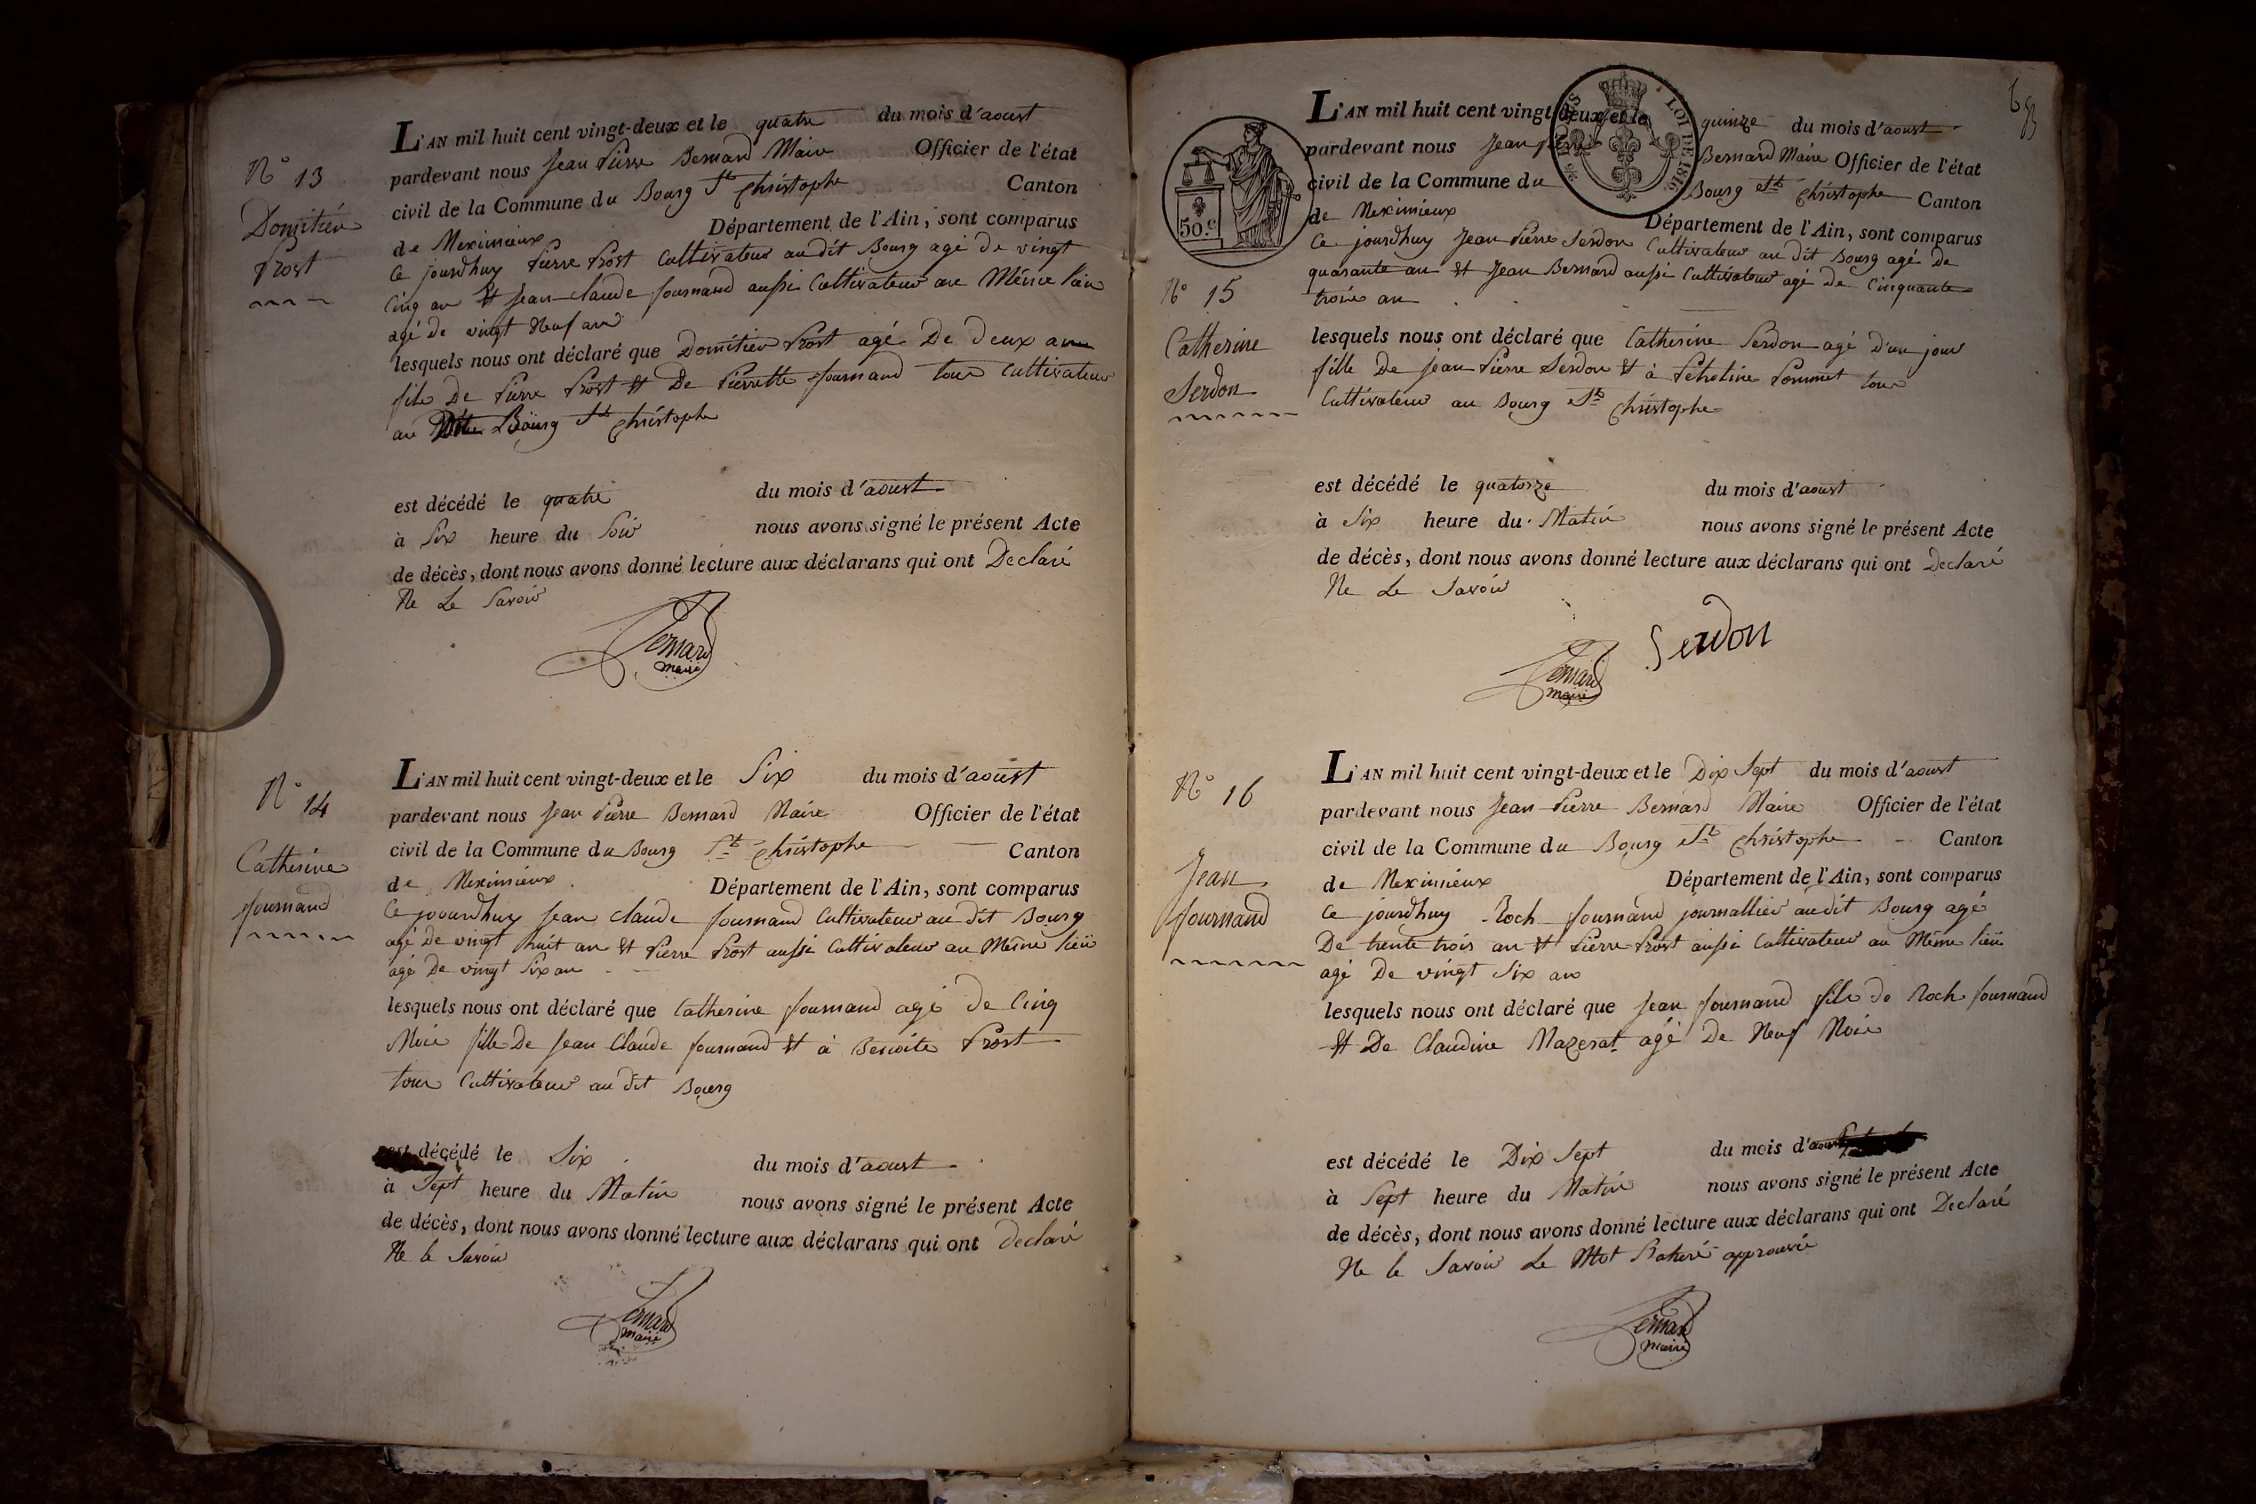 N° 13
Domitien
Prost
L'AN mil huit cent vingt-deux et le quatre du mois d'aoust
pardevant nous Jean Pierre Bernard Maire Officier de l'état
civil de la Commune du Bourg St Christophe Canton
de Meximieux Département de l'Ain, sont comparus
Ce jourdhuy Pierre Prost Cultivateur audit Bourg agé de vingt
Cinq an et Jean Claude fournand aussi Cultivateur au Même lieu
agé De vingt Neuf ans
lesquels nous ont déclaré que Domitien Prost agé De Deux ans
fils De Pierre Prost et De Pierrette fournand tous Cultivateur
au Bourg St Christophe
est décédé le quatre du mois d'aoust
à Six heure du Soir nous avons signé le présent Acte
de décès, dont nous avons donné lecture aux déclarans qui ont Declaré
Ne Le Savoir
Bernard
maire
N° 14
Catherine
fournand
L'AN mil huit cent vingt-deux et le Six du mois d'aoust
pardevant nous Jean Pierre Bernard Maire Officier de l'état
civil de la Commune du Bourg St Christophe Canton
de Meximieux Département de l'Ain, sont comparus
Ce jourdhuy Jean Claude fournand Cultivateur au dit Bourg
agé De vingt huit an et Pierre Prost aussi Cultivateur au Même lieu
agé De vingt Six an
lesquels nous ont déclaré que Catherine fournand agé de Cinq
Mois fille De Jean Claude fournand et à Benoite Prost
tous Cultivateur au dit Bourg
est décédé le Six du mois d'aoust
à Sept heure du Matin nous avons signé le présent Acte
de décès, dont nous avons donné lecture aux déclarans qui ont declaré
Ne le Savoir
Bernard
maire
50.c
LOI DE 1816
N° 15
Catherine
Serdon
L'AN mil huit cent vingt-deux et le quinze du mois d'aoust
pardevant nous Jean pierre Bernard Maire Officier de l'état
civil de la Commune du Bourg St Christophe Canton
de Meximieux Département de l'Ain, sont comparus
Ce jourdhuy Jean Pierre Serdon Cultivateur au dit Bourg agé De
quarante an et Jean Bernard aussi Cultivateur agé De Cinquante
trois an
lesquels nous ont déclaré que Catherine Serdon agé D'un jour
fille De Jean Pierre Serdon et à Pommet tous
Cultivateur au Bourg St Christophe
est décédé le quatorze du mois d'aoust
à Six heure du Matin nous avons signé le présent Acte
de décès, dont nous avons donné lecture aux déclarans qui ont Declaré
Ne Le Savoir
Serdon
Bernard
maire
N° 16
Jean
fournand
L'AN mil huit cent vingt-deux et le Dix Sept du mois d'aoust
pardevant nous Jean Pierre Bernard Maire Officier de l'état
civil de la Commune du Bourg St Christophe Canton
de Meximieux Département de l'Ain, sont comparus
Ce jourdhuy Roch fournand journallier audit Bourg agé
De trente trois an et Pierre Prost aussi Cultivateur au Même lieu
agé De vingt Six an
lesquels nous ont déclaré que Jean fournand fils de Roch fournand
et De Claudine Mazerat agé De Neuf Mois
est décédé le Dix Sept du mois d'aoust
à Sept heure du Matin nous avons signé le présent Acte
de décès, dont nous avons donné lecture aux déclarans qui ont Declaré
Ne le Savoir Le Mot approuvé
Bernard
maire